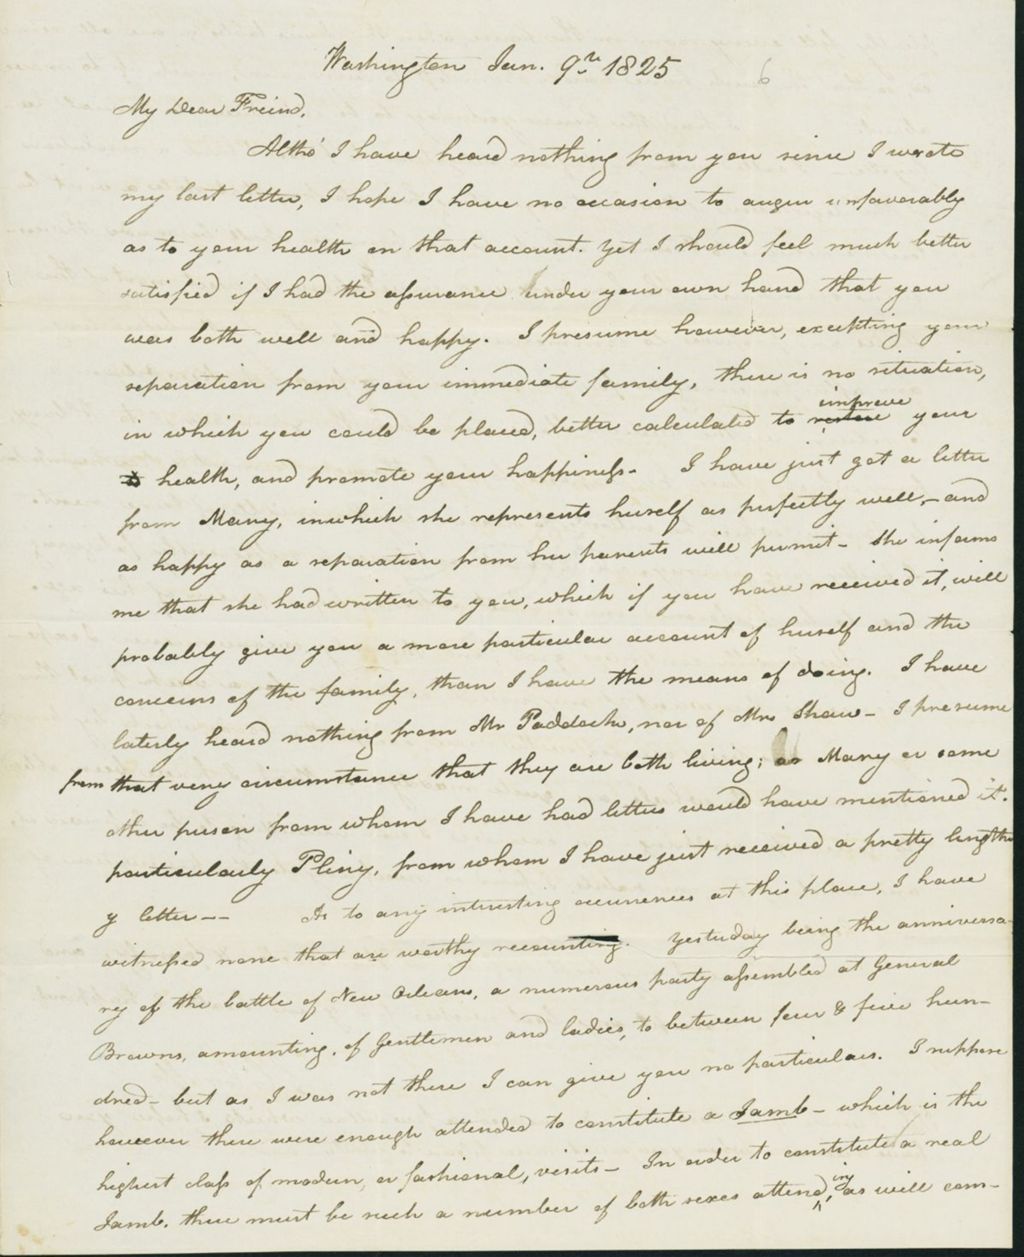 Washington Jan. 9th 1825
6
My Dear Freind,
Altho' I have heard nothing from you since I wrote
my last letter, I hope I have no occasion to augur unfavorably
as to your health on that account. Yet I should feel much better
satisfied if I had the assurance under your own hand that you
was both well and happy. I presume however, excepting your
separation from your immediate family, there is no situation,
improve
in which you could be placed, better calculated to your
health, and promote your happiness - I have just got a letter
from Mary, in which she represents herself as perfectly well, - and
as happy as a separation from her parents will permit - She informs
me that she had written to you, which if you have received it, will
probably give you a more particular account of herself and the
concerns of the family, than I have the means of doing. I have
laterly heard nothing from Mr Paddock, nor of Mrs Shaw - I presume
from that very circumstance that they are both living; as Mary or some
other person from whom I have had letters would have mentioned it.
particularly Pliny, from whom I have just received a pretty lengthe
y letter -- As to any interesting occurrences at this place, I have
witnessed none that are worthy recounting. Yesterday being the anniversa-
ry of the battle of New Orleans, a numerous party assembled at General
Browns, amounting, of Gentlemen and ladies, to between four & five hun-
dred - but as I was not there I can give you no particulars. I suppose
however there were enough attended to constitute a Jamb - which is the
highest class of modern, or fashional, visits - In order to constitute a real
Jamb, there must be such a number of both sexes attending, as will com-